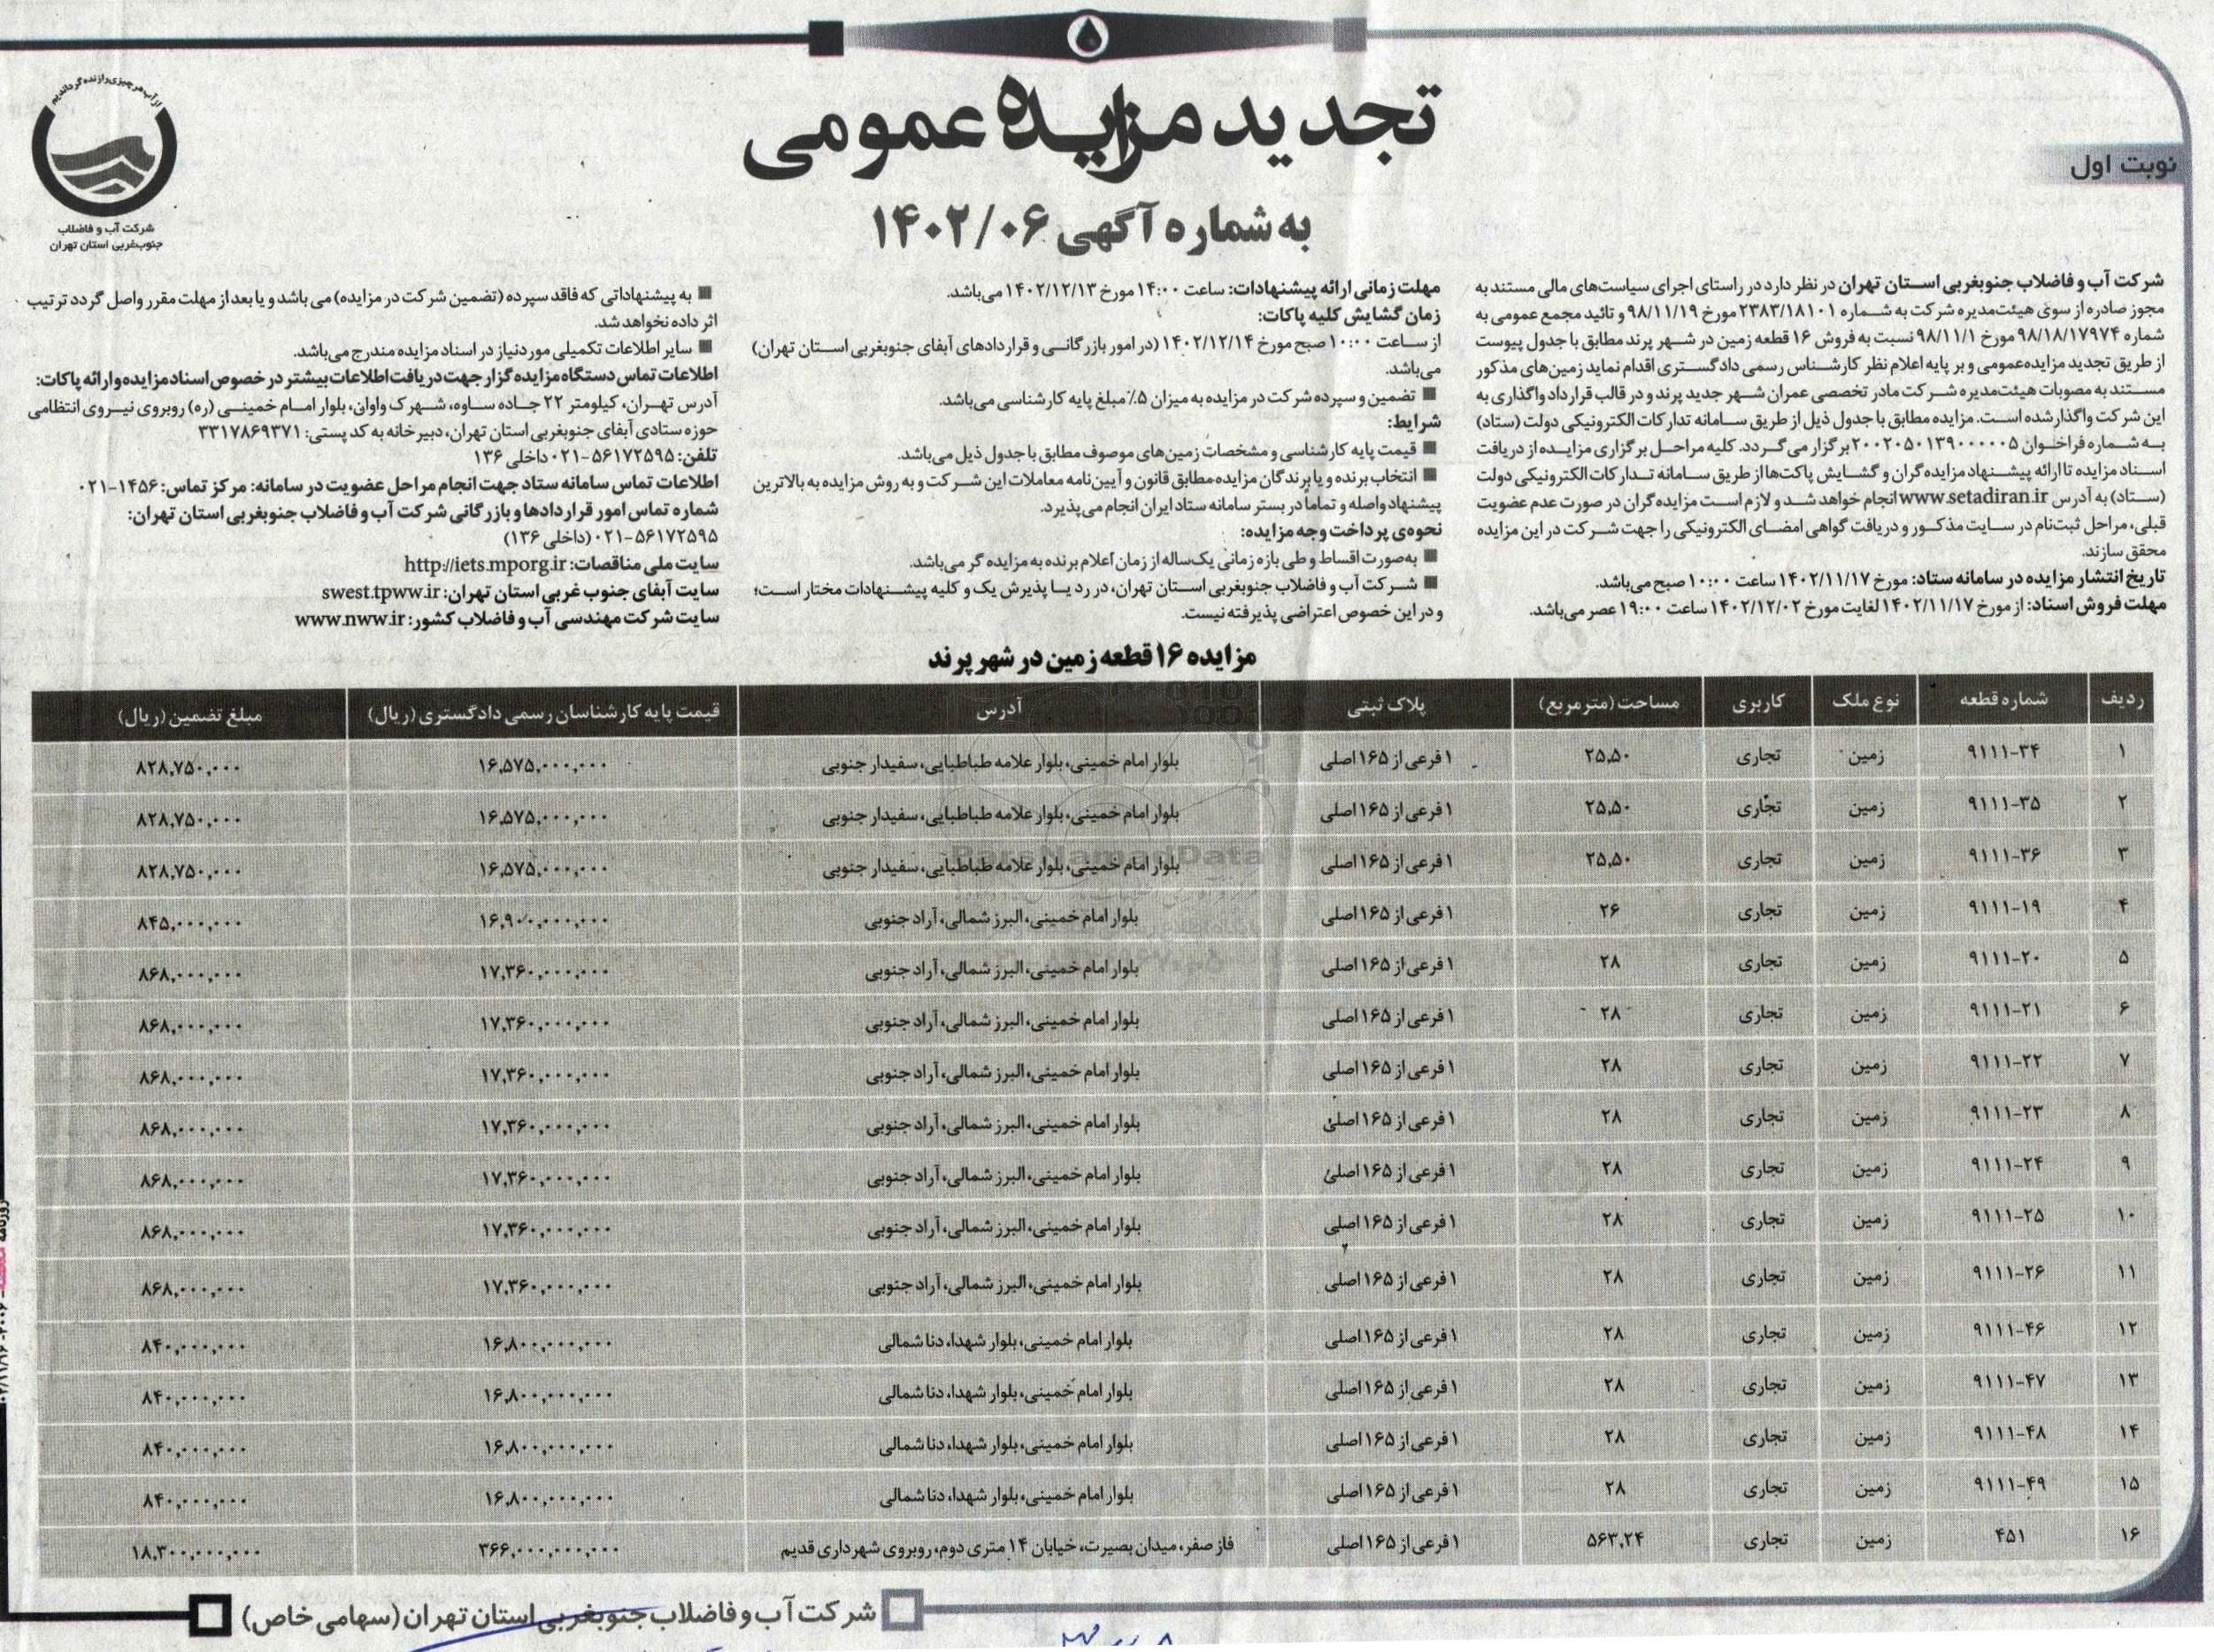 تجدید مزایده عمومی
نوبت اول
به شماره آگهی ۱۴۰۲/۰۶
از آب هر چیزی را زنده گرداندیم
شرکت آب و فاضلاب
جنوب‌غربی استان تهران
شرکت آب و فاضلاب جنوبغربی استان تهران در نظر دارد در راستای اجرای سیاست‌های مالی مستند به
مجوز صادره از سوی هیئت‌مدیره شرکت به شماره ۲۳۸۳/۱۸۱۰۱ مورخ ۹۸/۱۱/۱۹ و تائید مجمع عمومی به
شماره ۹۸/۱۸/۱۷۹۷۴ مورخ ۹۸/۱۱/۱ نسبت به فروش ۱۶ قطعه زمین در شهر پرند مطابق با جدول پیوست
از طریق تجدید مزایده‌عمومی و بر پایه اعلام نظر کارشناس رسمی دادگستری اقدام نماید زمین‌های مذکور
مستند به مصوبات هیئت‌مدیره شرکت مادر تخصصی عمران شهر جدید پرند و در قالب قرارداد واگذاری به
این شرکت واگذار شده است. مزایده مطابق با جدول ذیل از طریق سامانه تدارکات الکترونیکی دولت (ستاد)
به شماره فراخوان ۲۰۰۲۰۵۰۱۳۹۰۰۰۰۰۵ برگزار می‌گردد. کلیه مراحل برگزاری مزایده از دریافت
اسناد مزایده تا ارائه پیشنهاد مزایده‌گران و گشایش پاکت‌ها از طریق سامانه تدارکات الکترونیکی دولت
(ستاد) به آدرس www.setadiran.ir انجام خواهد شد و لازم است مزایده‌گران در صورت عدم عضویت
قبلی، مراحل ثبت‌نام در سایت مذکور و دریافت گواهی امضای الکترونیکی را جهت شرکت در این مزایده
محقق سازند.
تاریخ انتشار مزایده در سامانه ستاد: مورخ ۱۴۰۲/۱۱/۱۷ ساعت ۱۰:۰۰ صبح می‌باشد.
مهلت فروش اسناد: از مورخ ۱۴۰۲/۱۱/۱۷ لغایت مورخ ۱۴۰۲/۱۲/۰۲ ساعت ۱۹:۰۰ عصر می‌باشد.
مهلت زمانی ارائه پیشنهادات: ساعت ۱۴:۰۰ مورخ ۱۴۰۲/۱۲/۱۳ می‌باشد.
زمان گشایش کلیه پاکات:
از ساعت ۱۰:۰۰ صبح مورخ ۱۴۰۲/۱۲/۱۴ (در امور بازرگانی و قراردادهای آبفای جنوبغربی استان تهران)
می‌باشد.
■ تضمین و سپرده شرکت در مزایده به میزان ۵٪ مبلغ پایه کارشناسی می‌باشد.
شرایط:
■ قیمت پایه کارشناسی و مشخصات زمین‌های موصوف مطابق با جدول ذیل می‌باشد.
■ انتخاب برنده و یا برندگان مزایده مطابق قانون و آیین‌نامه معاملات این شرکت و به روش مزایده به بالاترین
پیشنهاد واصله و تماماً در بستر سامانه ستاد ایران انجام می‌پذیرد.
نحوه‌ی پرداخت وجه مزایده:
■ به‌صورت اقساط و طی بازه زمانی یک‌ساله از زمان اعلام برنده به مزایده گر می‌باشد.
■ شرکت آب و فاضلاب جنوبغربی استان تهران، در رد یا پذیرش یک و کلیه پیشنهادات مختار است؛
و در این خصوص اعتراضی پذیرفته نیست.
■ به پیشنهاداتی که فاقد سپرده (تضمین شرکت در مزایده) می باشد و یا بعد از مهلت مقرر واصل گردد ترتیب
اثر داده نخواهد شد.
■ سایر اطلاعات تکمیلی موردنیاز در اسناد مزایده مندرج می‌باشد.
اطلاعات تماس دستگاه مزایده گزار جهت دریافت اطلاعات بیشتر در خصوص اسناد مزایده و ارائه پاکات:
آدرس تهران، کیلومتر ۲۲ جاده ساوه، شهرک واوان، بلوار امام خمینی (ره) روبروی نیروی انتظامی
حوزه ستادی آبفای جنوبغربی استان تهران، دبیرخانه به کد پستی: ۳۳۱۷۸۶۹۳۷۱
تلفن: ۵۶۱۷۲۵۹۵-۰۲۱ داخلی ۱۳۶
اطلاعات تماس سامانه ستاد جهت انجام مراحل عضویت در سامانه: مرکز تماس: ۱۴۵۶-۰۲۱
شماره تماس امور قراردادها و بازرگانی شرکت آب و فاضلاب جنوبغربی استان تهران:
۵۶۱۷۲۵۹۵-۰۲۱ (داخلی ۱۳۶)
سایت ملی مناقصات: http://iets.mporg.ir
سایت آبفای جنوب غربی استان تهران: swest.tpww.ir
سایت شرکت مهندسی آب و فاضلاب کشور: www.nww.ir
مزایده ۱۶ قطعه زمین در شهر پرند
ردیف شماره قطعه نوع ملک کاربری مساحت (مترمربع) پلاک ثبتی آدرس قیمت پایه کارشناسان رسمی دادگستری (ریال) مبلغ تضمین (ریال)
۱ ۹۱۱۱-۳۴ زمین تجاری ۲۵,۵۰ ۱ فرعی از ۱۶۵ اصلی بلوار امام خمینی، بلوار علامه طباطبایی، سفیدار جنوبی ۱۶,۵۷۵,۰۰۰,۰۰۰ ۸۲۸,۷۵۰,۰۰۰
۲ ۹۱۱۱-۳۵ زمین تجاری ۲۵,۵۰ ۱ فرعی از ۱۶۵ اصلی بلوار امام خمینی، بلوار علامه طباطبایی، سفیدار جنوبی ۱۶,۵۷۵,۰۰۰,۰۰۰ ۸۲۸,۷۵۰,۰۰۰
۳ ۹۱۱۱-۳۶ زمین تجاری ۲۵,۵۰ ۱ فرعی از ۱۶۵ اصلی بلوار امام خمینی، بلوار علامه طباطبایی، سفیدار جنوبی ۱۶,۵۷۵,۰۰۰,۰۰۰ ۸۲۸,۷۵۰,۰۰۰
۴ ۹۱۱۱-۱۹ زمین تجاری ۲۶ ۱ فرعی از ۱۶۵ اصلی بلوار امام خمینی، البرز شمالی، آراد جنوبی ۱۶,۹۰۰,۰۰۰,۰۰۰ ۸۴۵,۰۰۰,۰۰۰
۵ ۹۱۱۱-۲۰ زمین تجاری ۲۸ ۱ فرعی از ۱۶۵ اصلی بلوار امام خمینی، البرز شمالی، آراد جنوبی ۱۷,۳۶۰,۰۰۰,۰۰۰ ۸۶۸,۰۰۰,۰۰۰
۶ ۹۱۱۱-۲۱ زمین تجاری ۲۸ ۱ فرعی از ۱۶۵ اصلی بلوار امام خمینی، البرز شمالی، آراد جنوبی ۱۷,۳۶۰,۰۰۰,۰۰۰ ۸۶۸,۰۰۰,۰۰۰
۷ ۹۱۱۱-۲۲ زمین تجاری ۲۸ ۱ فرعی از ۱۶۵ اصلی بلوار امام خمینی، البرز شمالی، آراد جنوبی ۱۷,۳۶۰,۰۰۰,۰۰۰ ۸۶۸,۰۰۰,۰۰۰
۸ ۹۱۱۱-۲۳ زمین تجاری ۲۸ ۱ فرعی از ۱۶۵ اصلی بلوار امام خمینی، البرز شمالی، آراد جنوبی ۱۷,۳۶۰,۰۰۰,۰۰۰ ۸۶۸,۰۰۰,۰۰۰
۹ ۹۱۱۱-۲۴ زمین تجاری ۲۸ ۱ فرعی از ۱۶۵ اصلی بلوار امام خمینی، البرز شمالی، آراد جنوبی ۱۷,۳۶۰,۰۰۰,۰۰۰ ۸۶۸,۰۰۰,۰۰۰
۱۰ ۹۱۱۱-۲۵ زمین تجاری ۲۸ ۱ فرعی از ۱۶۵ اصلی بلوار امام خمینی، البرز شمالی، آراد جنوبی ۱۷,۳۶۰,۰۰۰,۰۰۰ ۸۶۸,۰۰۰,۰۰۰
۱۱ ۹۱۱۱-۲۶ زمین تجاری ۲۸ ۱ فرعی از ۱۶۵ اصلی بلوار امام خمینی، البرز شمالی، آراد جنوبی ۱۷,۳۶۰,۰۰۰,۰۰۰ ۸۶۸,۰۰۰,۰۰۰
۱۲ ۹۱۱۱-۴۶ زمین تجاری ۲۸ ۱ فرعی از ۱۶۵ اصلی بلوار امام خمینی، بلوار شهدا، دنا شمالی ۱۶,۸۰۰,۰۰۰,۰۰۰ ۸۴۰,۰۰۰,۰۰۰
۱۳ ۹۱۱۱-۴۷ زمین تجاری ۲۸ ۱ فرعی از ۱۶۵ اصلی بلوار امام خمینی، بلوار شهدا، دنا شمالی ۱۶,۸۰۰,۰۰۰,۰۰۰ ۸۴۰,۰۰۰,۰۰۰
۱۴ ۹۱۱۱-۴۸ زمین تجاری ۲۸ ۱ فرعی از ۱۶۵ اصلی بلوار امام خمینی، بلوار شهدا، دنا شمالی ۱۶,۸۰۰,۰۰۰,۰۰۰ ۸۴۰,۰۰۰,۰۰۰
۱۵ ۹۱۱۱-۴۹ زمین تجاری ۲۸ ۱ فرعی از ۱۶۵ اصلی بلوار امام خمینی، بلوار شهدا، دنا شمالی ۱۶,۸۰۰,۰۰۰,۰۰۰ ۸۴۰,۰۰۰,۰۰۰
۱۶ ۴۵۱ زمین تجاری ۵۶۳,۲۴ ۱ فرعی از ۱۶۵ اصلی فاز صفر، میدان بصیرت، خیابان ۱۴ متری دوم، روبروی شهرداری قدیم ۳۶۶,۰۰۰,۰۰۰,۰۰۰ ۱۸,۳۰۰,۰۰۰,۰۰۰
شرکت آب و فاضلاب جنوبغربی استان تهران (سهامی خاص)